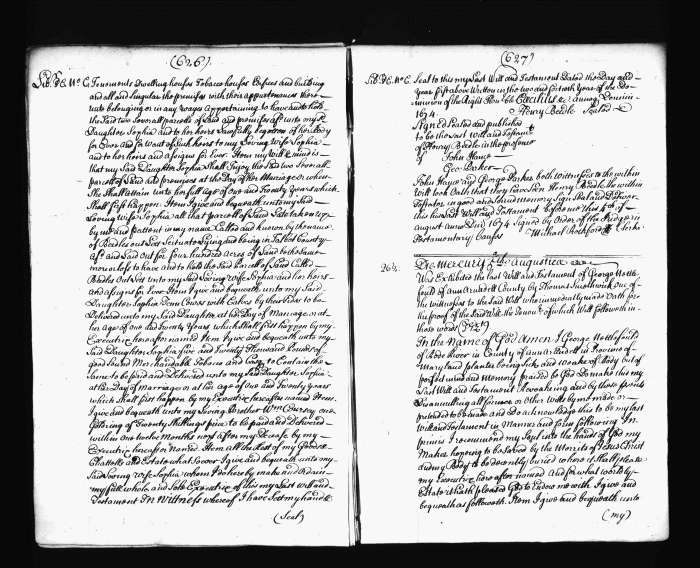 (626)
Lib. No. C. Tenements Dwelling houses Tobacco houses Edifices and building
and all and Singular the premises with their appurtenances there
unto belonging or in any ways appertaining to have and to hold
the said two severall parcells of Land and premises unto my
Daughter Sophia and to her heires Lawfully begotten of her Body
for Ever and for want of Such heires to my Loving Wife Sophia
and to her heires and assigns for Ever. Item my will & mind is
that my Said Daughter Sophia Shall Enjoy the Said two severall
parcells of Land and premises at the Day of her Marriage or when
She Shall attain unto her full age of one and Twenty years which
Shall first happen. Item I give and bequeath unto my Said
Loving Wife Sophia all that parcell of Land Late taken up
by me and pattent in my name Called and known by the name
of Beedles out Let Scituate Lying and being in Talbot County
and Laid out for four hundred acres of Land be the same
more or less to have and to hold the Said parcell of Land Called
Beedles out Let unto my Said Loving Wife Sophia and her heires
and assigns for Ever. Item I give and bequeath unto my Said
Daughter Sophia Cows with Calves by their Sides to be
Delivered unto my Said Daughter at her Day of Marriage or at
her age of one and Twenty Years which Shall first happen by my
Executrix hereafter named Item I give and bequeath unto my
Said Daughter Sophia five and Twenty Thousand pounds of
good Sound Merchandable Tobacco and Cask to Contain the
Same to be paid and Delivered unto my said Daughter Sophia
at her Day of Marriage or at her age of one and Twenty years
which Shall first happen by my Executrix hereafter named Item
I give and bequeath unto my Loving Brother Wm. Coursey one
gold ring of Twenty Shillings price to be paid and Delivered
within one twelve Months next after my Decease by my
Executrix hereafter named Item all the Rest of my Goods
Chattells and Estate whatsoever I give and bequeath unto my
Said Loving Wife Sophia whom I do hereby make and ordain
my full whole and Sole Executrix of this my Last will and
Testament In Wittness whereof I have Set my hand &
(Seal)
(627)
Lib. No. C. Seal to this my Last Will and Testament Dated the Day and
year first above Written in the two and fortieth Year of the Do-
minion of the Right Honble Cecilius &c. annoq Domini
1674 Henry Beedle Sealed
Signed Sealed and published
to be the last Will and Testamt.
of Henry Beedle in the presence
of John Hance
Geo: Parker
John Hance and George Parker both Wittnesses to the within
Will took Oath that they have Seen Henry Beedle the within
Testator in good and Sound Memory Sign Seal and Deliver
this his Last Will and Testament before me this 5th of
august anno Dni. 1674 Signed by Order of the Judge in
Testamentary Causes Michael Rochford Clerke
264. Die Mercury 5th augusti &c
Was Exhibited the Last Will and Testament of George Nettle-
feild of Annarundell County by Thomas Smothwick one of
the Wittnesses to the Said Will who immediately made Oath for
the proof of the Said Will the Tenour of which Will followeth in
these words (Vizt)
In the Name of God Amen. I George Nettlefeild
of Rode river in County of annarundell in Province of
Maryland planter being Sick and Weake of Body but of
perfect mind and Memory praised be God Do make this my
Last Will and Testament Revoaking and by these presents
Disannulling all former or Other Wills by me made or
pretended to be made and Do acknowledge this to be my last
Will and Testament in Manner and form following Im-
primis I recommend my Soul into the hands of God my
Maker hopeing to be Saved by the Merits of Jesus Christ
and my Body to be decently buried where it Shall please
my Executrix hereafter named and for what worldly
Estate it hath pleased God to Endow me with I give and
bequeath as followeth Item I give and bequeath unto
(my)